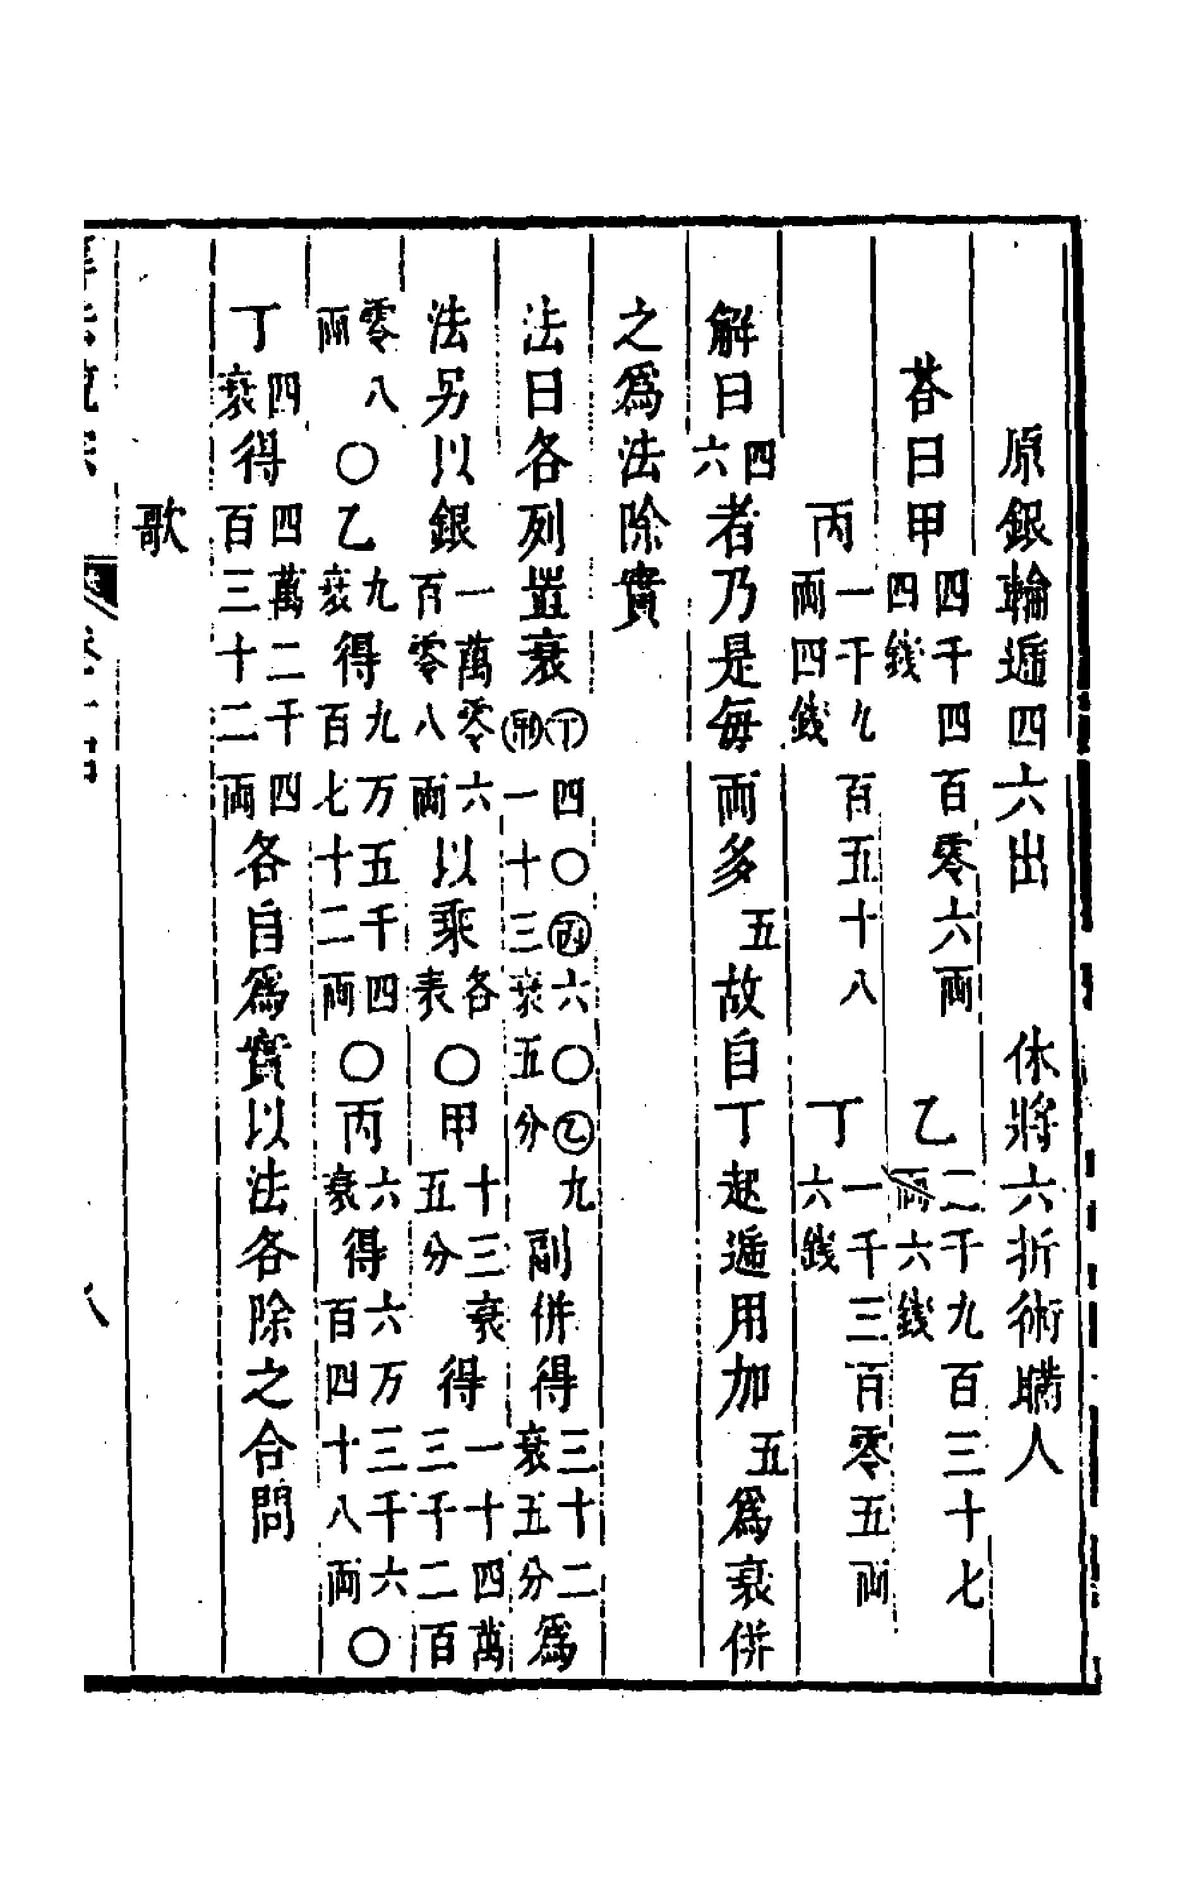 原銀輪遞四六出　休將六折術瞞人
荅曰甲四千四百零六兩四錢　乙二千九百三十七兩六錢
丙一千九百五十八兩四錢　丁一千三百零五兩六錢
解曰四六者乃是每兩多五故自丁起遞用加五爲衰併
之爲法除實
法曰各列置衰丁四〇丙六〇乙九甲一十三衰五分副併得三十二衰五分爲
法另以銀一萬零六百零八兩以乘各表〇甲十三衰五分得一十四萬三千二百
零八兩〇乙九衰得九万五千四百七十二兩〇丙六衰得六万三千六百四十八兩〇
丁四衰得四萬二千四百三十二兩各自爲實以法各除之合問
歌